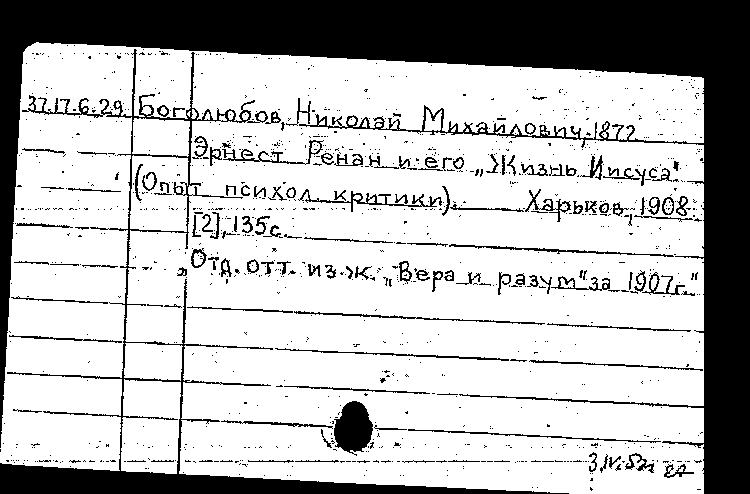 37.17.6.29 Боголюбов, Николай Михайлович, 1872
Эрнест Ренан и его „Жизнь Иисуса"
(Опыт психол. критики). Харьков, 1908.
[2], 135 с.
„Отд. отт. из ж. „Вера и разум" за 1907 г."